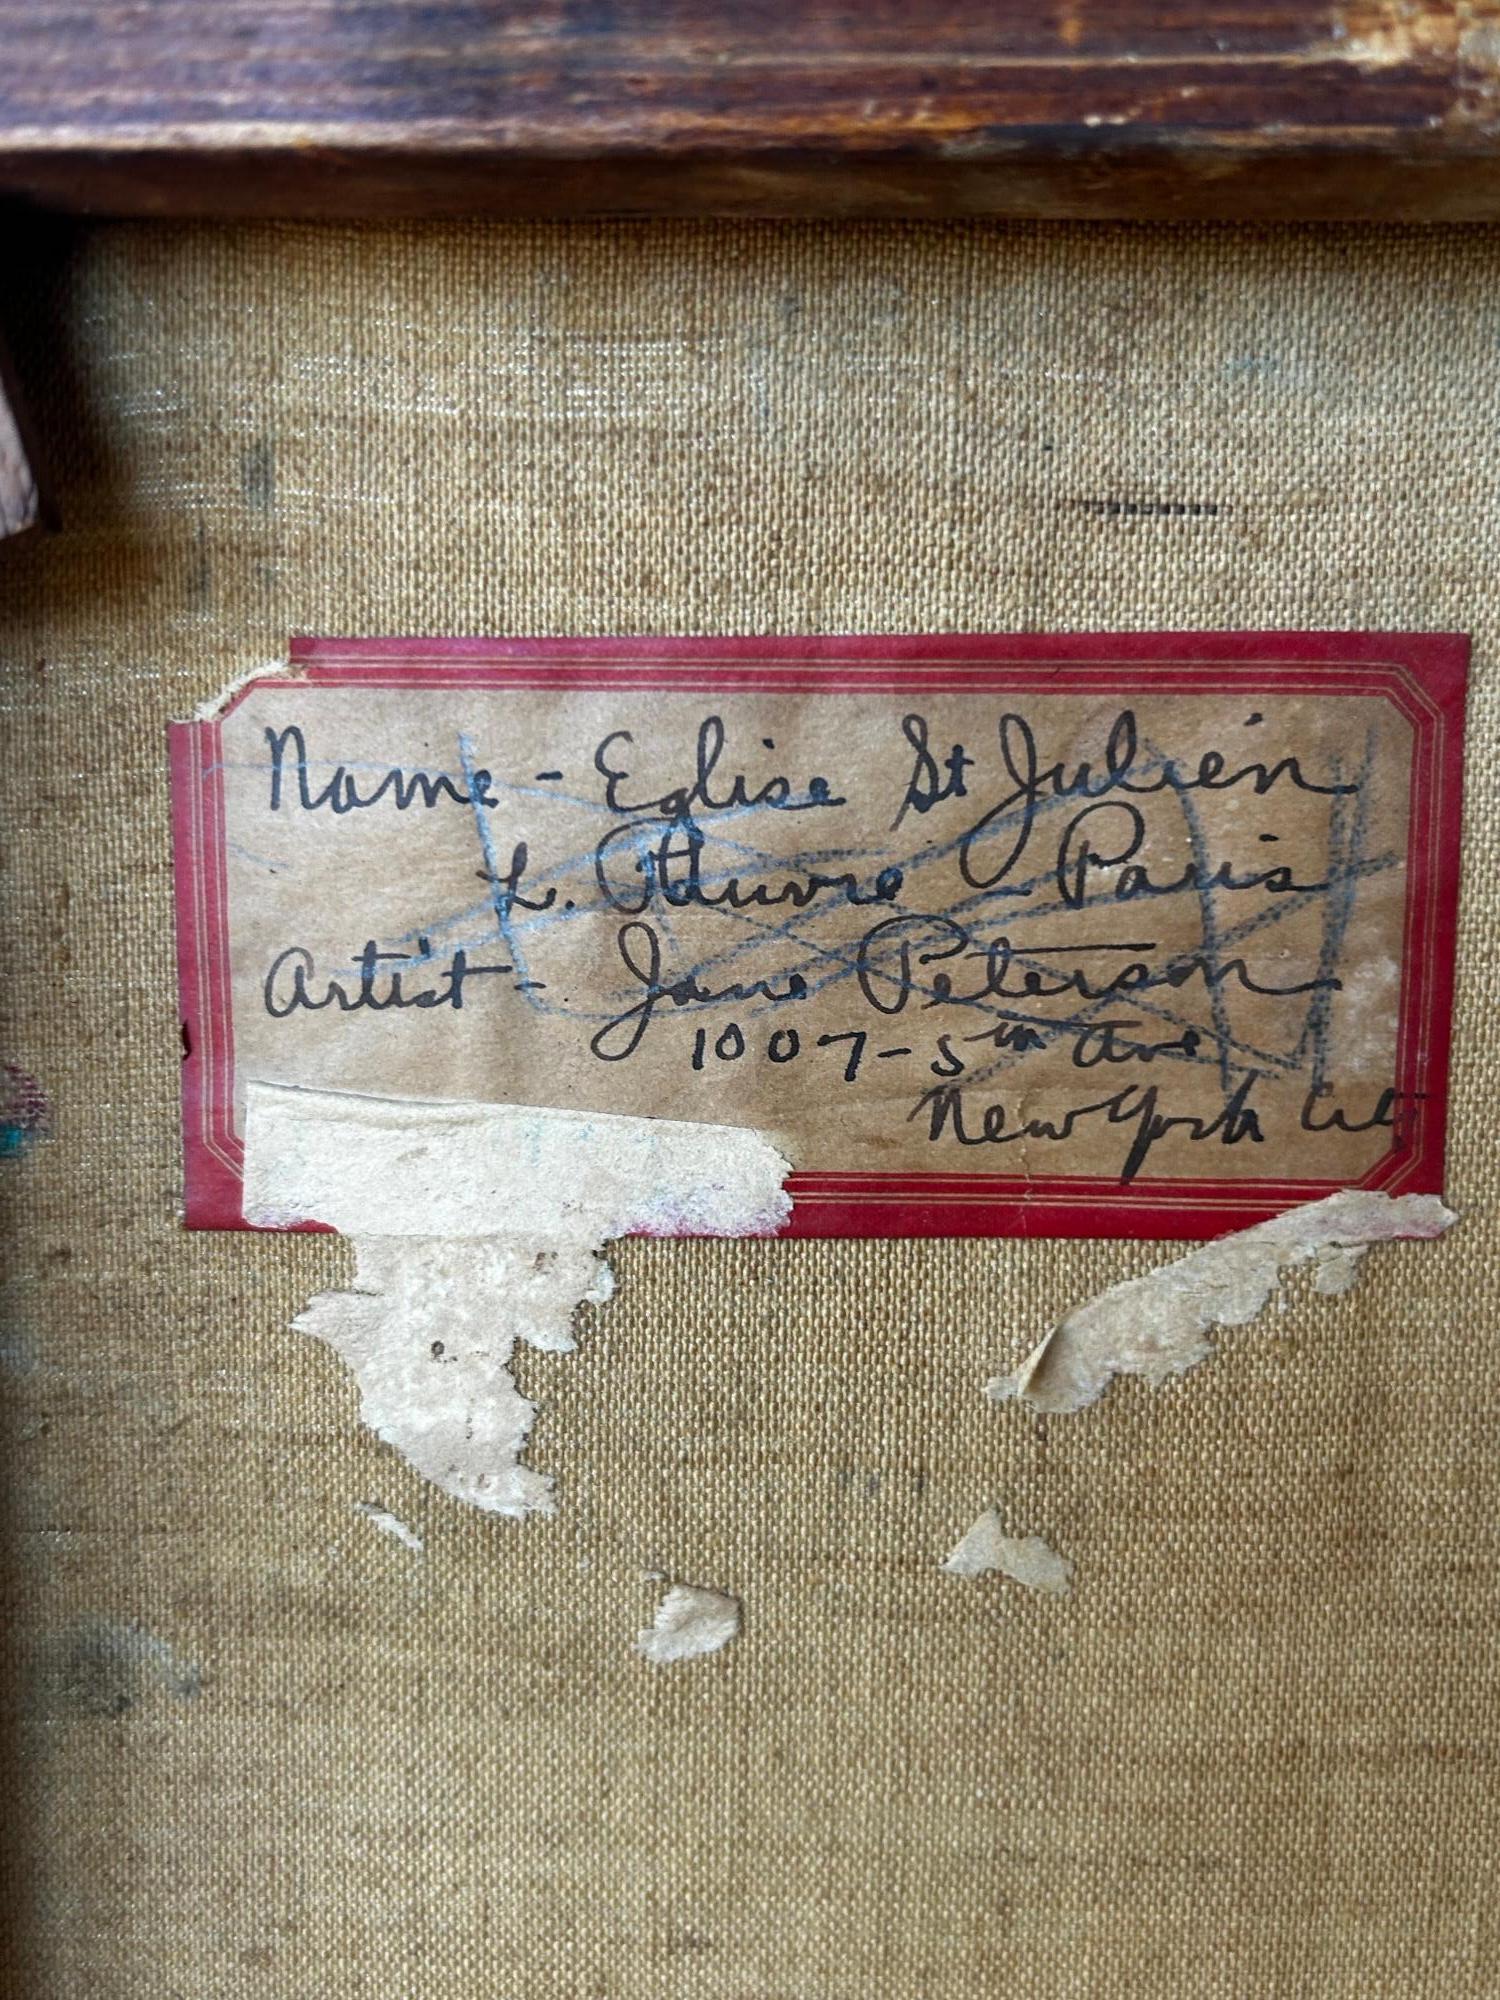 Name - Eglise St Julien
L. Pauvre - Paris
Artist - Jane Peterson
1007 - 5th Ave
New York City